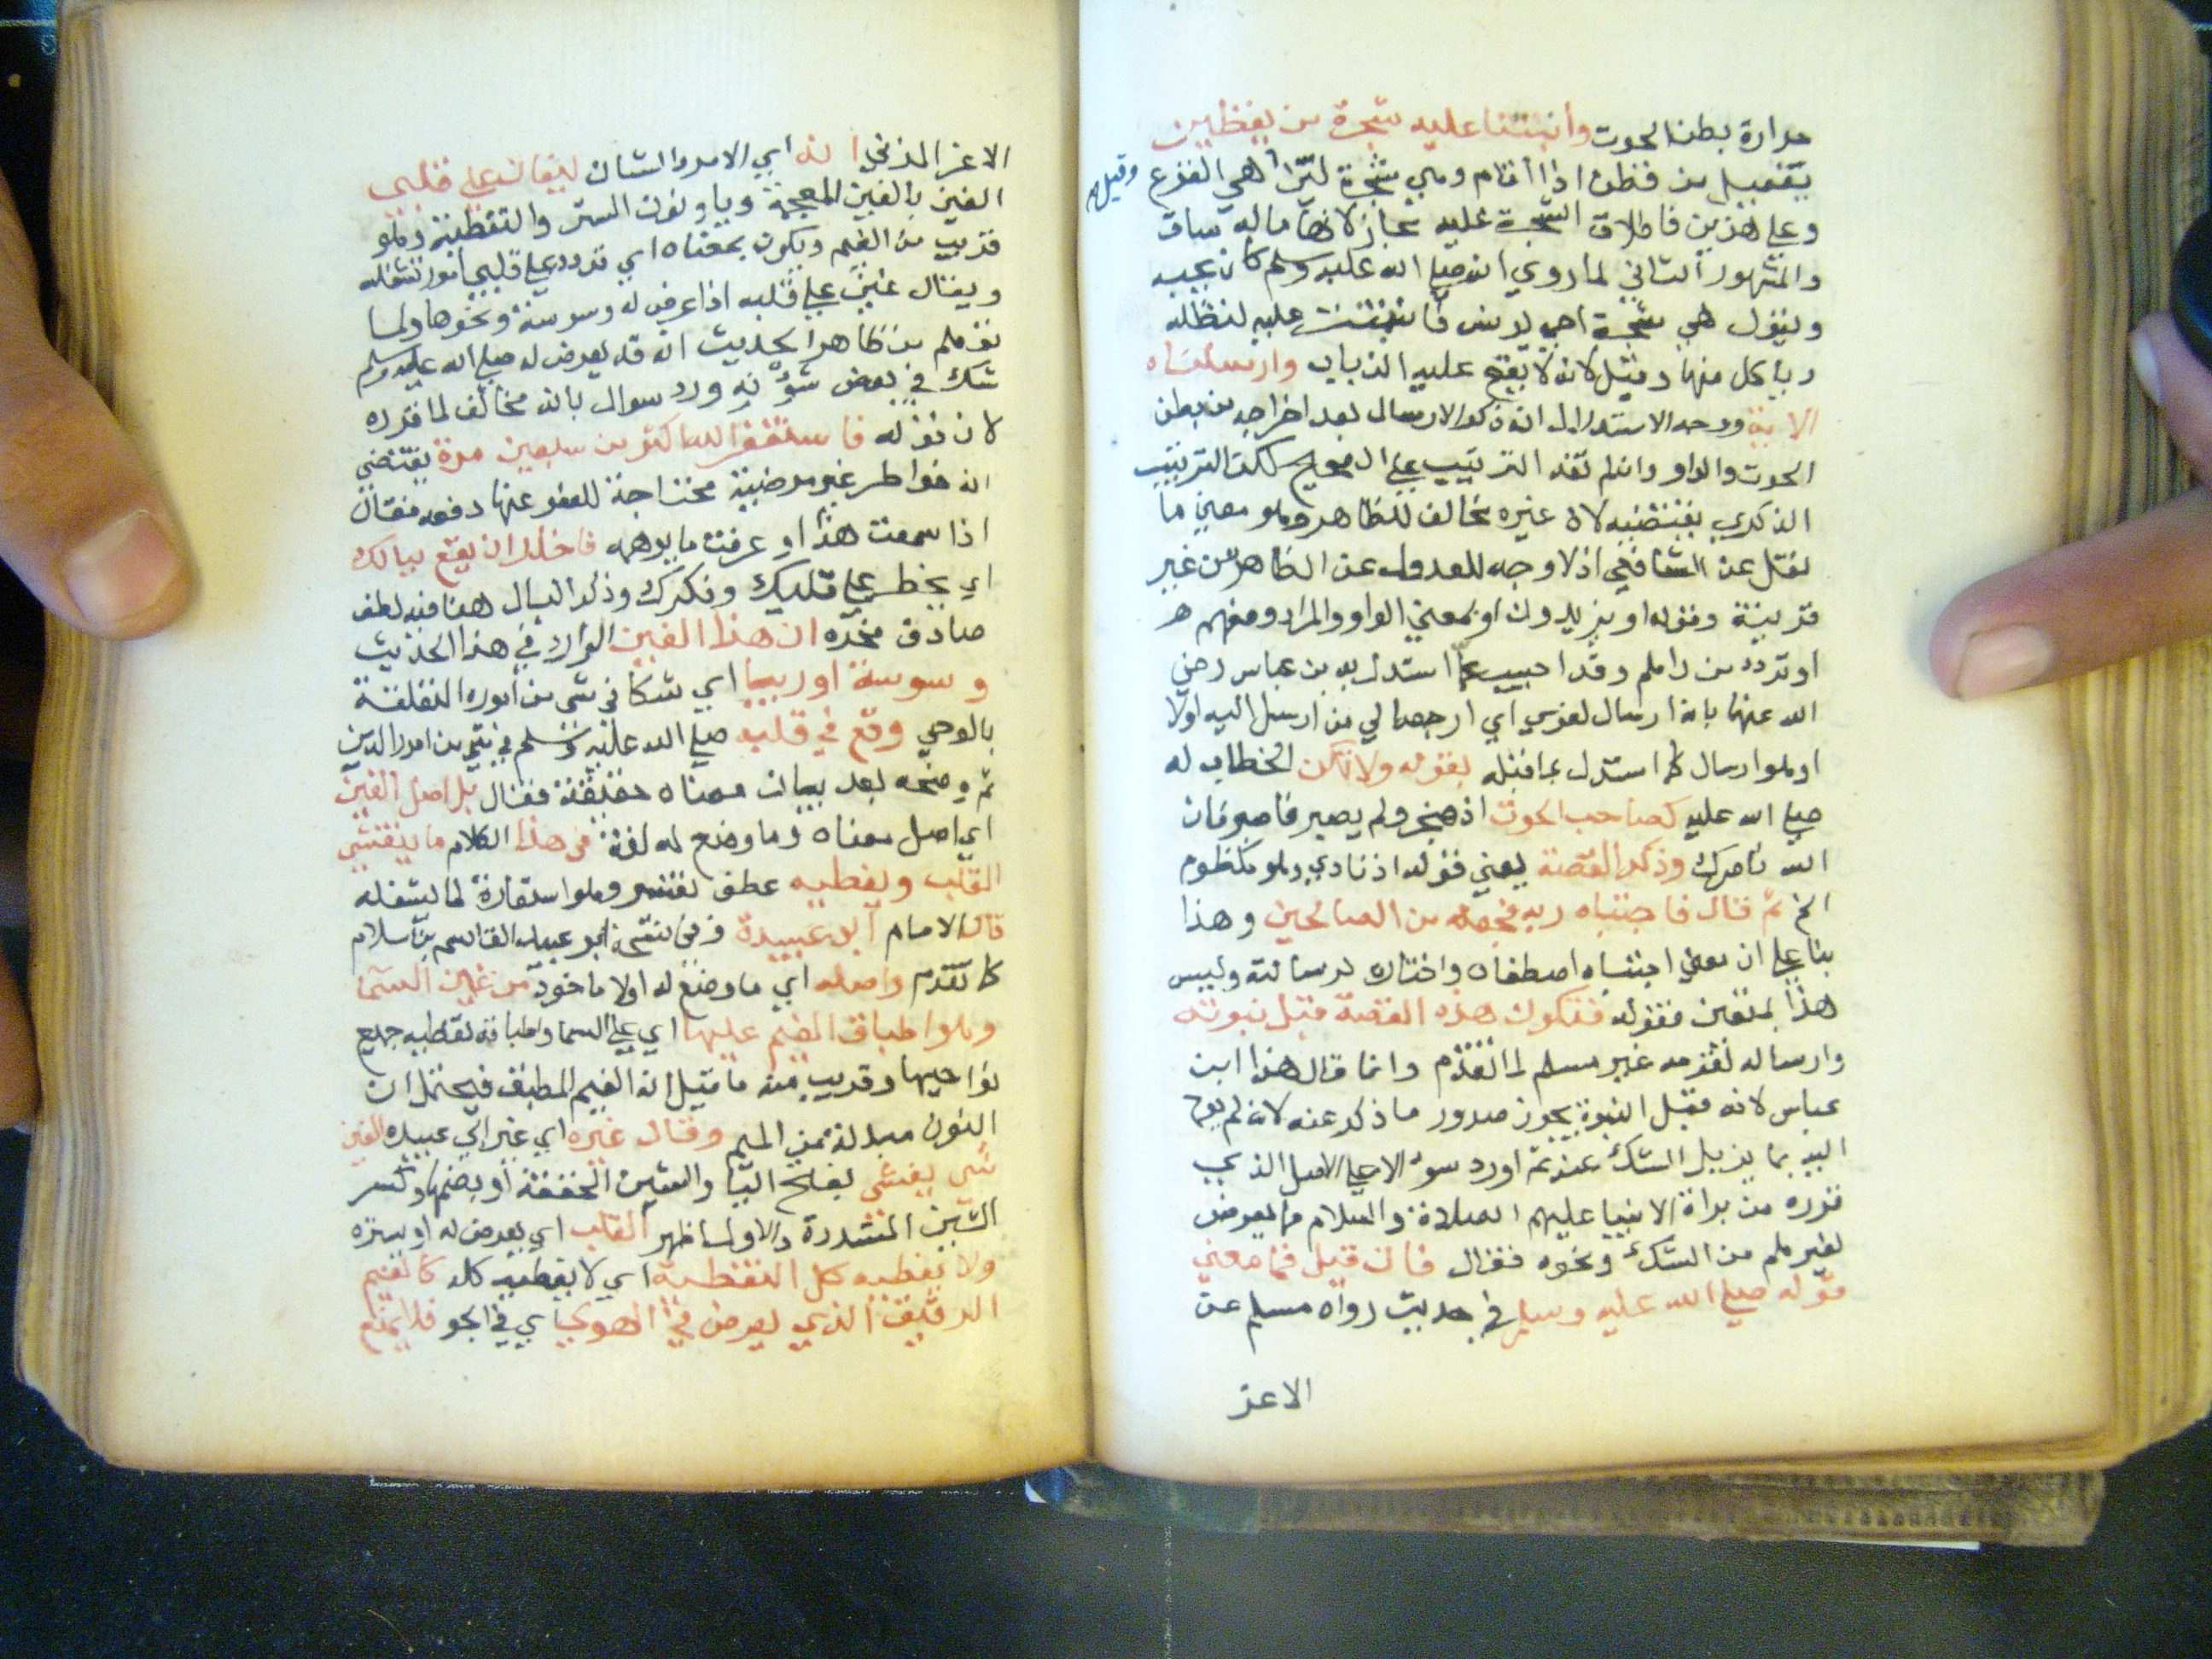 حرارة بطن الحوت وانبتنا عليه شجرة من يقطين
يفعيل من قطن اذا اقام وهي شجرة لترا هي القرع وقيل
وعلى هذين فاطلاق الشجرة عليه مجاز لانها ماله ساق
والمشهور الثاني لما روي انه صلى الله عليه وسلم كان يحبه
ويقول هي شجرة اخي يونس فانبتت عليه لتظله
وياكل منها وقيل لانه لا يقع عليه الذباب وارسلناه
الاية ووجه الاستدلال انه ذكر الارسال بعد اخراجه من بطن
الحوت والواو وان لم تفد الترتيب على الصحيح لكن الترتيب
الذكري يقتضيه لان غيره مخالف للظاهر وهو معنى ما
نقل عن الشافعي اذ لا وجه للعدول عن الظاهر من غير
قرينة وقوله او يزيدون او بمعنى الواو والمراد
او تردد من راهم وقد اجيب عما استدل به بن عباس رضي
الله عنهما بانه ارسال لغوي اي ارجع الي من ارسل اليه اولا
او هو ارسال كما استدل بما قبله بقوله ولا تكن الخطاب له
صلى الله عليه كصاحب الحوت اذ ضجر ولم يصبر فاصبر فان
الله ناصرك وذكر القصة يعني قوله اذ نادي وهو مكظوم
الخ ثم قال فاجتباه ربه فجعله من الصالحين وهذا
بناعلي ان معني اجتباه اصطفاه واختاره لرسالته وليس
هذا بمتعين فقوله فتكون هذه القصة قبل نبوته
وارساله لقومه غير مسلم لما تقدم وانما قال هذا ابن
عباس لانه قبل النبوة يجوز صدور ما ذكر عنه لانه لم يوح
اليه بما يزيل الشك عنه ثم اورد سوالا على الاصل الذي
قرره من براة الانبيا عليهم الصلاة والسلام مما يعرض
لغيرهم من الشك ونحوه فقال فان قيل فما معني
قوله صلى الله عليه وسلم في حديث رواه مسلم عن
الاغر
الاغر المزني انه اي الامر والشان ليغان على قلبي
الغين بالغين المعجمة ويا ونون الستر والتغطية وهو
قريب من الغيم ويكون بمعناه اي تردد على قلبي امور تشغله
ويقال غين على قلبه اذا عرض له وسوسة ونحوها ولما
توهم من ظاهر الحديث انه قد يعرض له صلى الله عليه وسلم
شك في بعض شؤنه ورد سوال بانه مخالف لما قرره
لان قوله فاستغفر الله اكثر من سبعين مرة يقتضي
انه خواطر غير مرضية محتاجة للعفو عنها دفعه فقال
اذا سمعت هذا او عرفت ما يوهمه فاحذر ان يقع ببالك
اي يخطر على قلبك وفكرك وذكر البال هنا فيه لطف
صادف محزه ان هذا الغين الوارد في هذا الحديث
وسوسة او ريبا اي شكا في شي من اموره المتعلقة
بالوحي وقع في قلبه صلى الله عليه وسلم في شي من امور الدين
ثم وضحه بعد بيان معناه حقيقة فقال بل اصل الغين
اي اصل معناه وما وضع له لغة في هذا الكلام ما يتغشي
القلب ويغطيه عطف تفسير وهو استعارة لما يشغله
قاله الامام ابو عبيدة وفي نسخة ابو عبيد القاسم بن سلام
كما تقدم واصله اي ما وضع له اولا ماخوذ من غين السما
وهو اطباق الغيم عليها اي على السما واطباقه تغطيه جميع
نواحيها وقريب منه ما قيل انه الغيم المطبق فيحتمل ان
النون مبدلة من الميم وقال غيره اي غير ابي عبيده الغين
شي يغشي بفتح اليا والشين المخففة او بضمها وكسر
الشين المشددة والاول اظهر القلب اي يعرض له او يستره
ولا يغطيه كل التغطية اي لا يغطيه كله كالغيم
الرقيق الذي يعرض في الهوي اي في الجو فلا يمنع